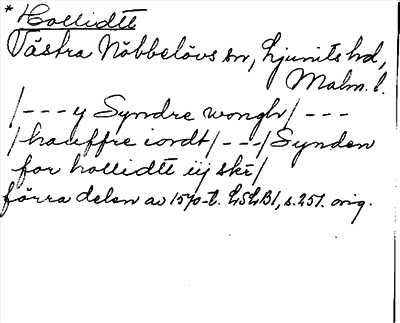 * Hollidtt
Västra Nöbbelövs sn, Ljunits hd,
Malm. l.
/---y Syndre wongh/---
/hauffre iordt/---/Synden
for hollidtt iij ske/
förra delen av 1570-t. LSLB1, s. 251. orig.